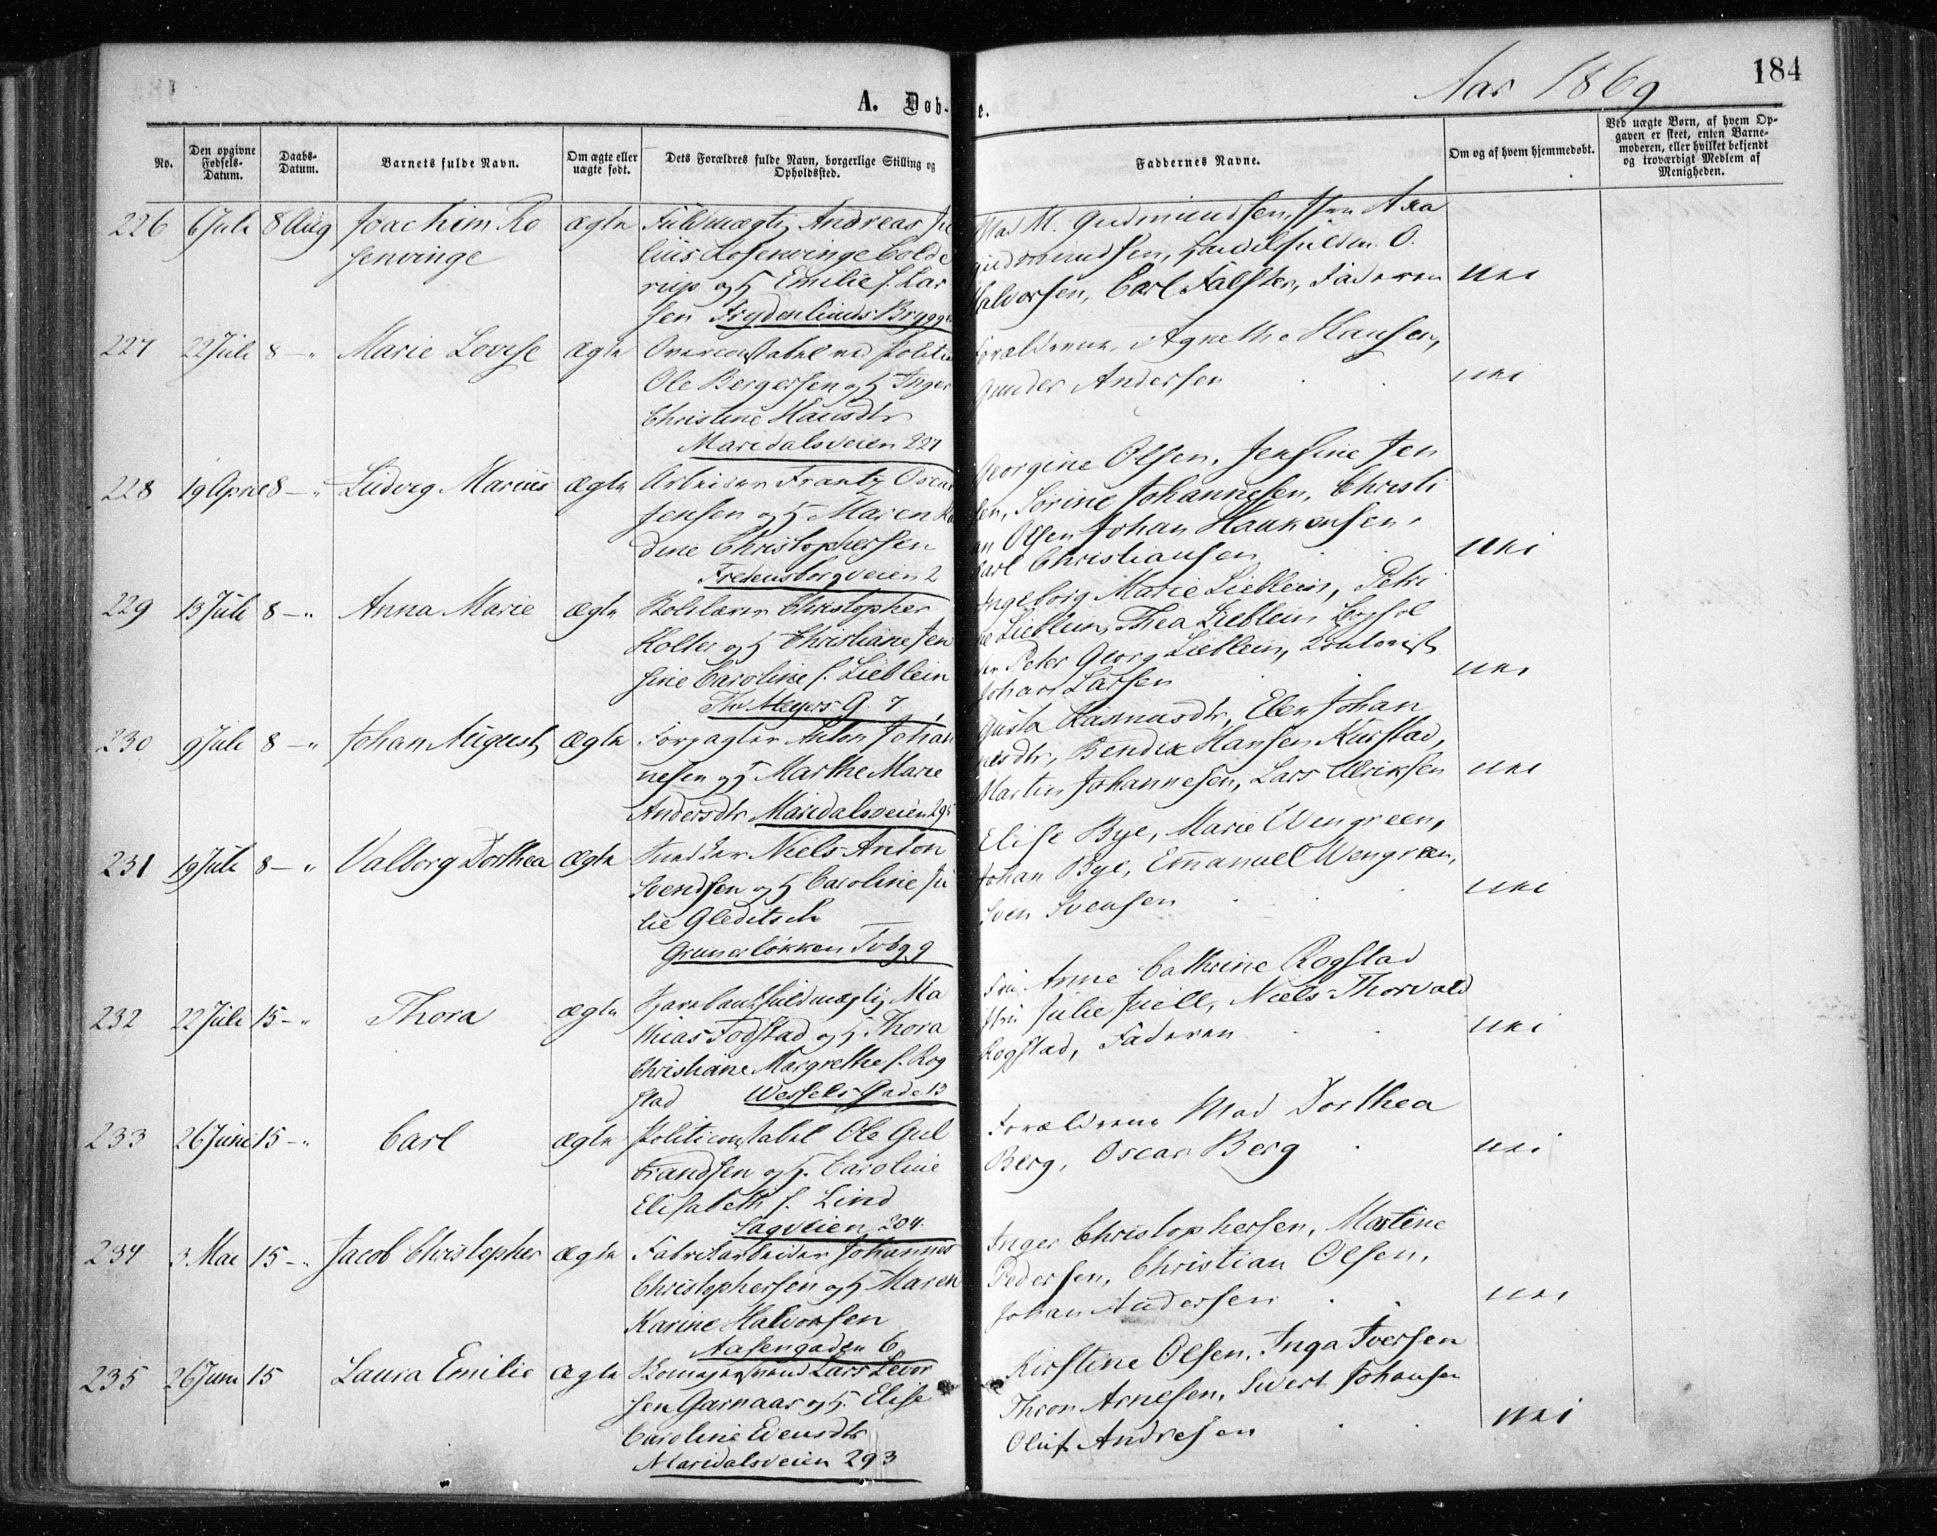 Aar 1869
184
A. Døb-
e.
No.
Den opgivne Fødsels-Datum.
Daabs-Datum.
Barnets fulde Navn.
Om ægte eller uægte født.
Dets Forældres fulde Navn, borgerlige Stilling og Opholdssted.
Faddernes Navne.
Om og af hvem hjemmedøbt.
Ved uægte Børn, af hvem Op-
gaven er skeet, enten Barne-
moderen, eller hvilket bekjendt
og troværdigt Medlem af
Menigheden.
226 6 Juli 8 Aug Joachim Ro ægte Fuldmægtig Andreas Ju
senvinge lius Rosenvinge Colde
rup og H Emilie f. Lar
sen Frydenlunds Bryggeri
Mad M. Gudmundsen, Aaa
Gudmundsen, Handelsfuldm. O.
Halvorsen, Carl Falsten, Faderen
nei
227 22 Juli 8 - " Marie Lovise ægte Overconstabel ved Politiet
Ole Bergersen og H Inger
Christine Hansdtr
Maridalsveien 227
Forældrene, Agnethe Hansen,
Gunder Andersen
nei
228 19 April 8 - " Ludvig Marius ægte Arbeider Frantz Oscar
Jensen og H Maren
dine Christophersen
Fredensborgveien 2
Georgine Olsen, Jensine Jen
sen, Sorine Johannesen, Christi
an Olsen Johan Haakensen,
Carl Christiansen
nei
229 13 Juli 8 - " Anna Marie ægte Skolelærer Christopher
Holter og H Christiane Jen
sine Caroline f. Lieblein
Thv Meyers G. 7
Ingeborg Marie Lieblein, Petri
ne Lieblein, Thea Lieblein,
Peter Georg Lieblein, Contorist
Johan Larsen
nei
230 9 Juli 8 - " Johan August ægte Forpagter Anton Johan
nesen og H Marthe Marie
Andersdtr Maridalsveien 295
Gusta Rasmusdtr, Elen Johan
nesdtr, Bendix Hansen Kurstad,
Martin Johannesen, Lars Ulriksen
nei
231 19 Juli 8 - " Valborg Dorthea ægte Snedker Niels Anton
Svendsen og H Caroline Ju
lie Gleditsch
Grunerløkken Tvbg 9
Elise Bye, Marie Wengreen,
Johan Bye, Emmanuel Wengreen,
Sven Svensen
nei
232 22 Juli 15 - " Thora ægte Sparebankfuldmægtig Ma
thias Fodstad og H. Thora
Christiane Margrethe f. Rog
stad Wessels Gade 13
Fru Anne Cathrine Rogstad
Fru Julie Juell, Niels Thorvald
Rogstad, Faderen
nei
233 26 Juni 15 - " Carl ægte Politiconstabel Ole Gul
brandsen og H. Caroline
Elisabeth f. Lind
Sagveien 204.
Forældrene Mad Dorthea
Berg, Oscar Berg
nei
234 3 Mai 15 - " Jacob Christopher ægte Fabrikarbeider Johannes
Christophersen og H Maren
Karine Halvorsen
Aasengaden 6
Inger Christophersen, Martine
Pedersen, Christian Olsen,
Johan Andersen
nei
235 26 Juni 15 Laura Emilie ægte Lars Levor
sen Garnaas og H. Elise
Caroline Evensdtr
Maridalsveien 293
Kirstine Olsen, Inga Iversen
Thron Arnesen, Sivert Johansen
Oluf Andresen
nei